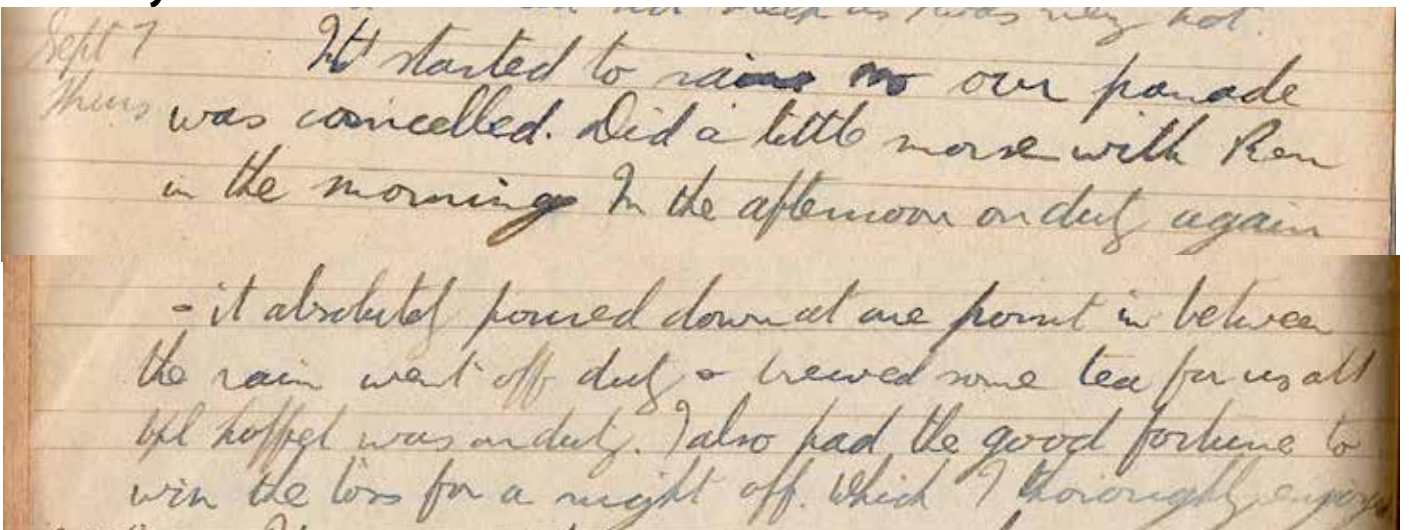 as I was very hot.
Sept 7 It started to rain so our parade
Thurs was cancelled. Did a little morse with Ron
in the morning In the afternoon on duty again
- it absolutely poured down at one point in between
the rain went off duty & brewed some tea for us all
was on duty. I also had the good fortune to
win the toss for a night off. Which I thoroughly enjoyed